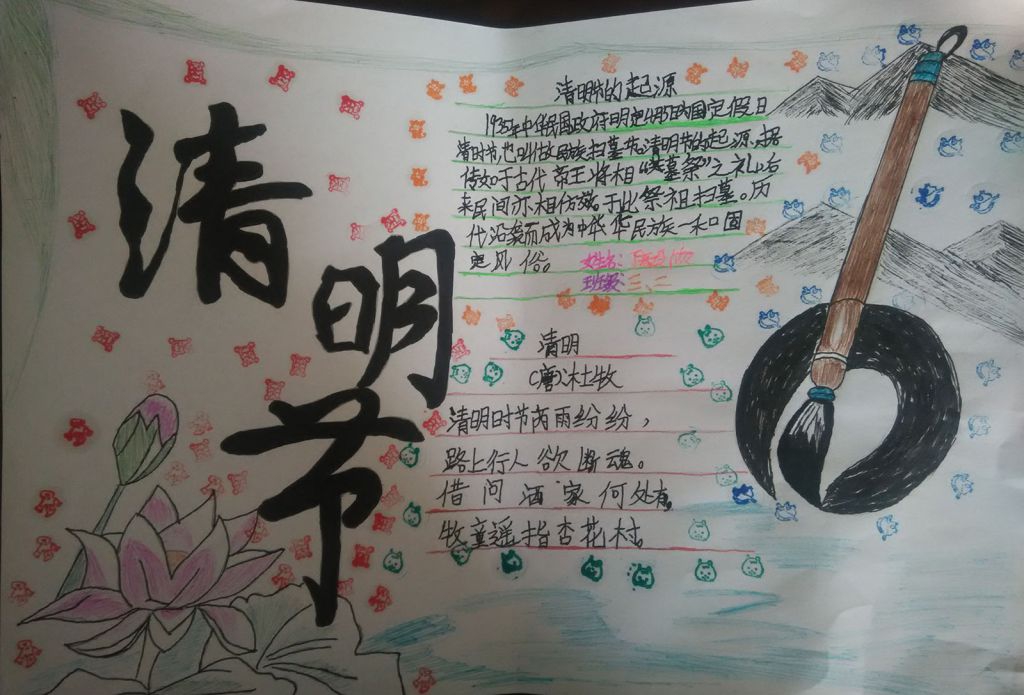 清明节
清明节的起源
1935年中华民国政府明定4月5日为国定假日
清时节,也叫做民族扫墓节。清明节的起源,据
传如于古代帝王将相“墓祭”之礼,后
来民间亦相仿效,于此祭祖扫墓。历
代沿袭而成为中华华民族一种固
定风俗。 姓名:
班级:三、二
清明
(唐)杜牧
清明时节芮雨纷纷,
路上行人欲断魂。
借问酒家何处有。
牧童遥指杏花村。